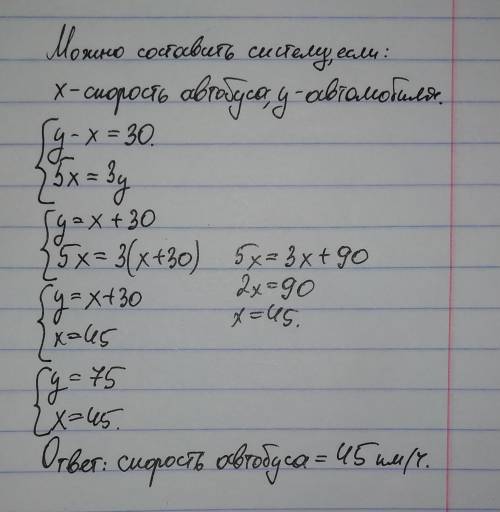 Можно составить систему, если:
x-скорость автобуса, y-автомобиля.
y-x=30.
5x=3y
y=x+30
5x=3(x+30) 5x=3x+90
2x=90
y=x+30
x=45.
x=45
y=75
x=45.
Ответ: скорость автобуса=45 км/ч.